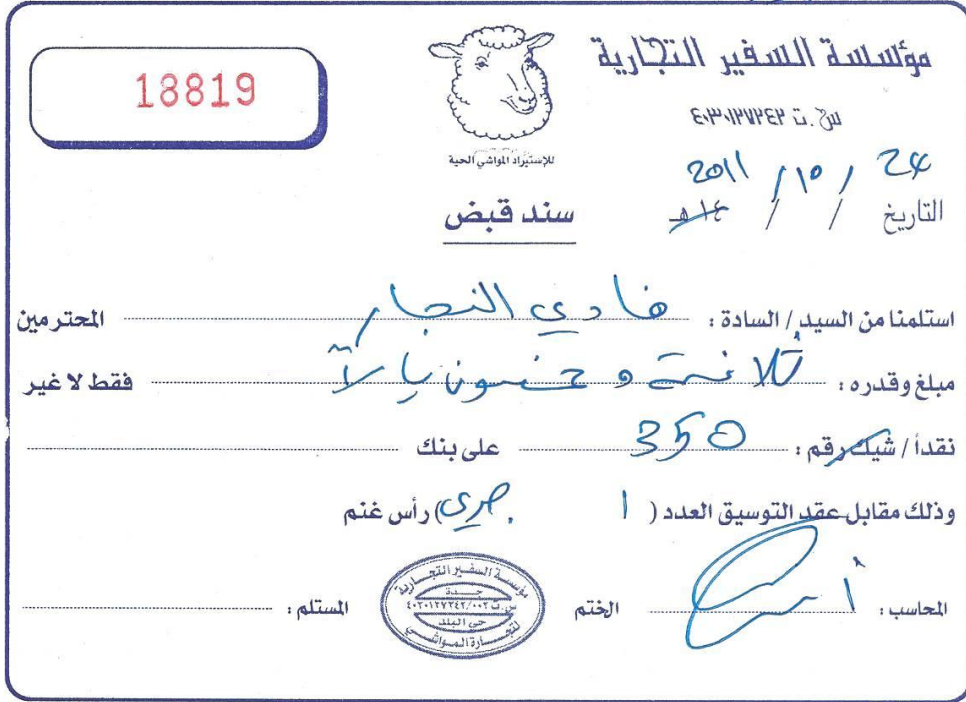 مؤسسة السفير التجارية
18819
س.ت ٤٠٣٠١٢٧٢٤٢
للإستيراد المواشي الحية
24 / 10 / 2011
التاريخ / / ١٤هـ
سند قبض
استلمنا من السيد / السادة : فادي النجار المحترمين
مبلغ وقدره : وخمسون ريالاً فقط لا غير
نقداً / شيك رقم : 350 على بنك
وذلك مقابل عقد التوسيق العدد ( ١ ) رأس غنم
المحاسب : الختم المستلم :
مؤسسة السفير التجارية
جدة
س.ت ٤٠٣٠١٢٧٢٤٢/٠٠٢
حي البلد
لتجارة المواشي